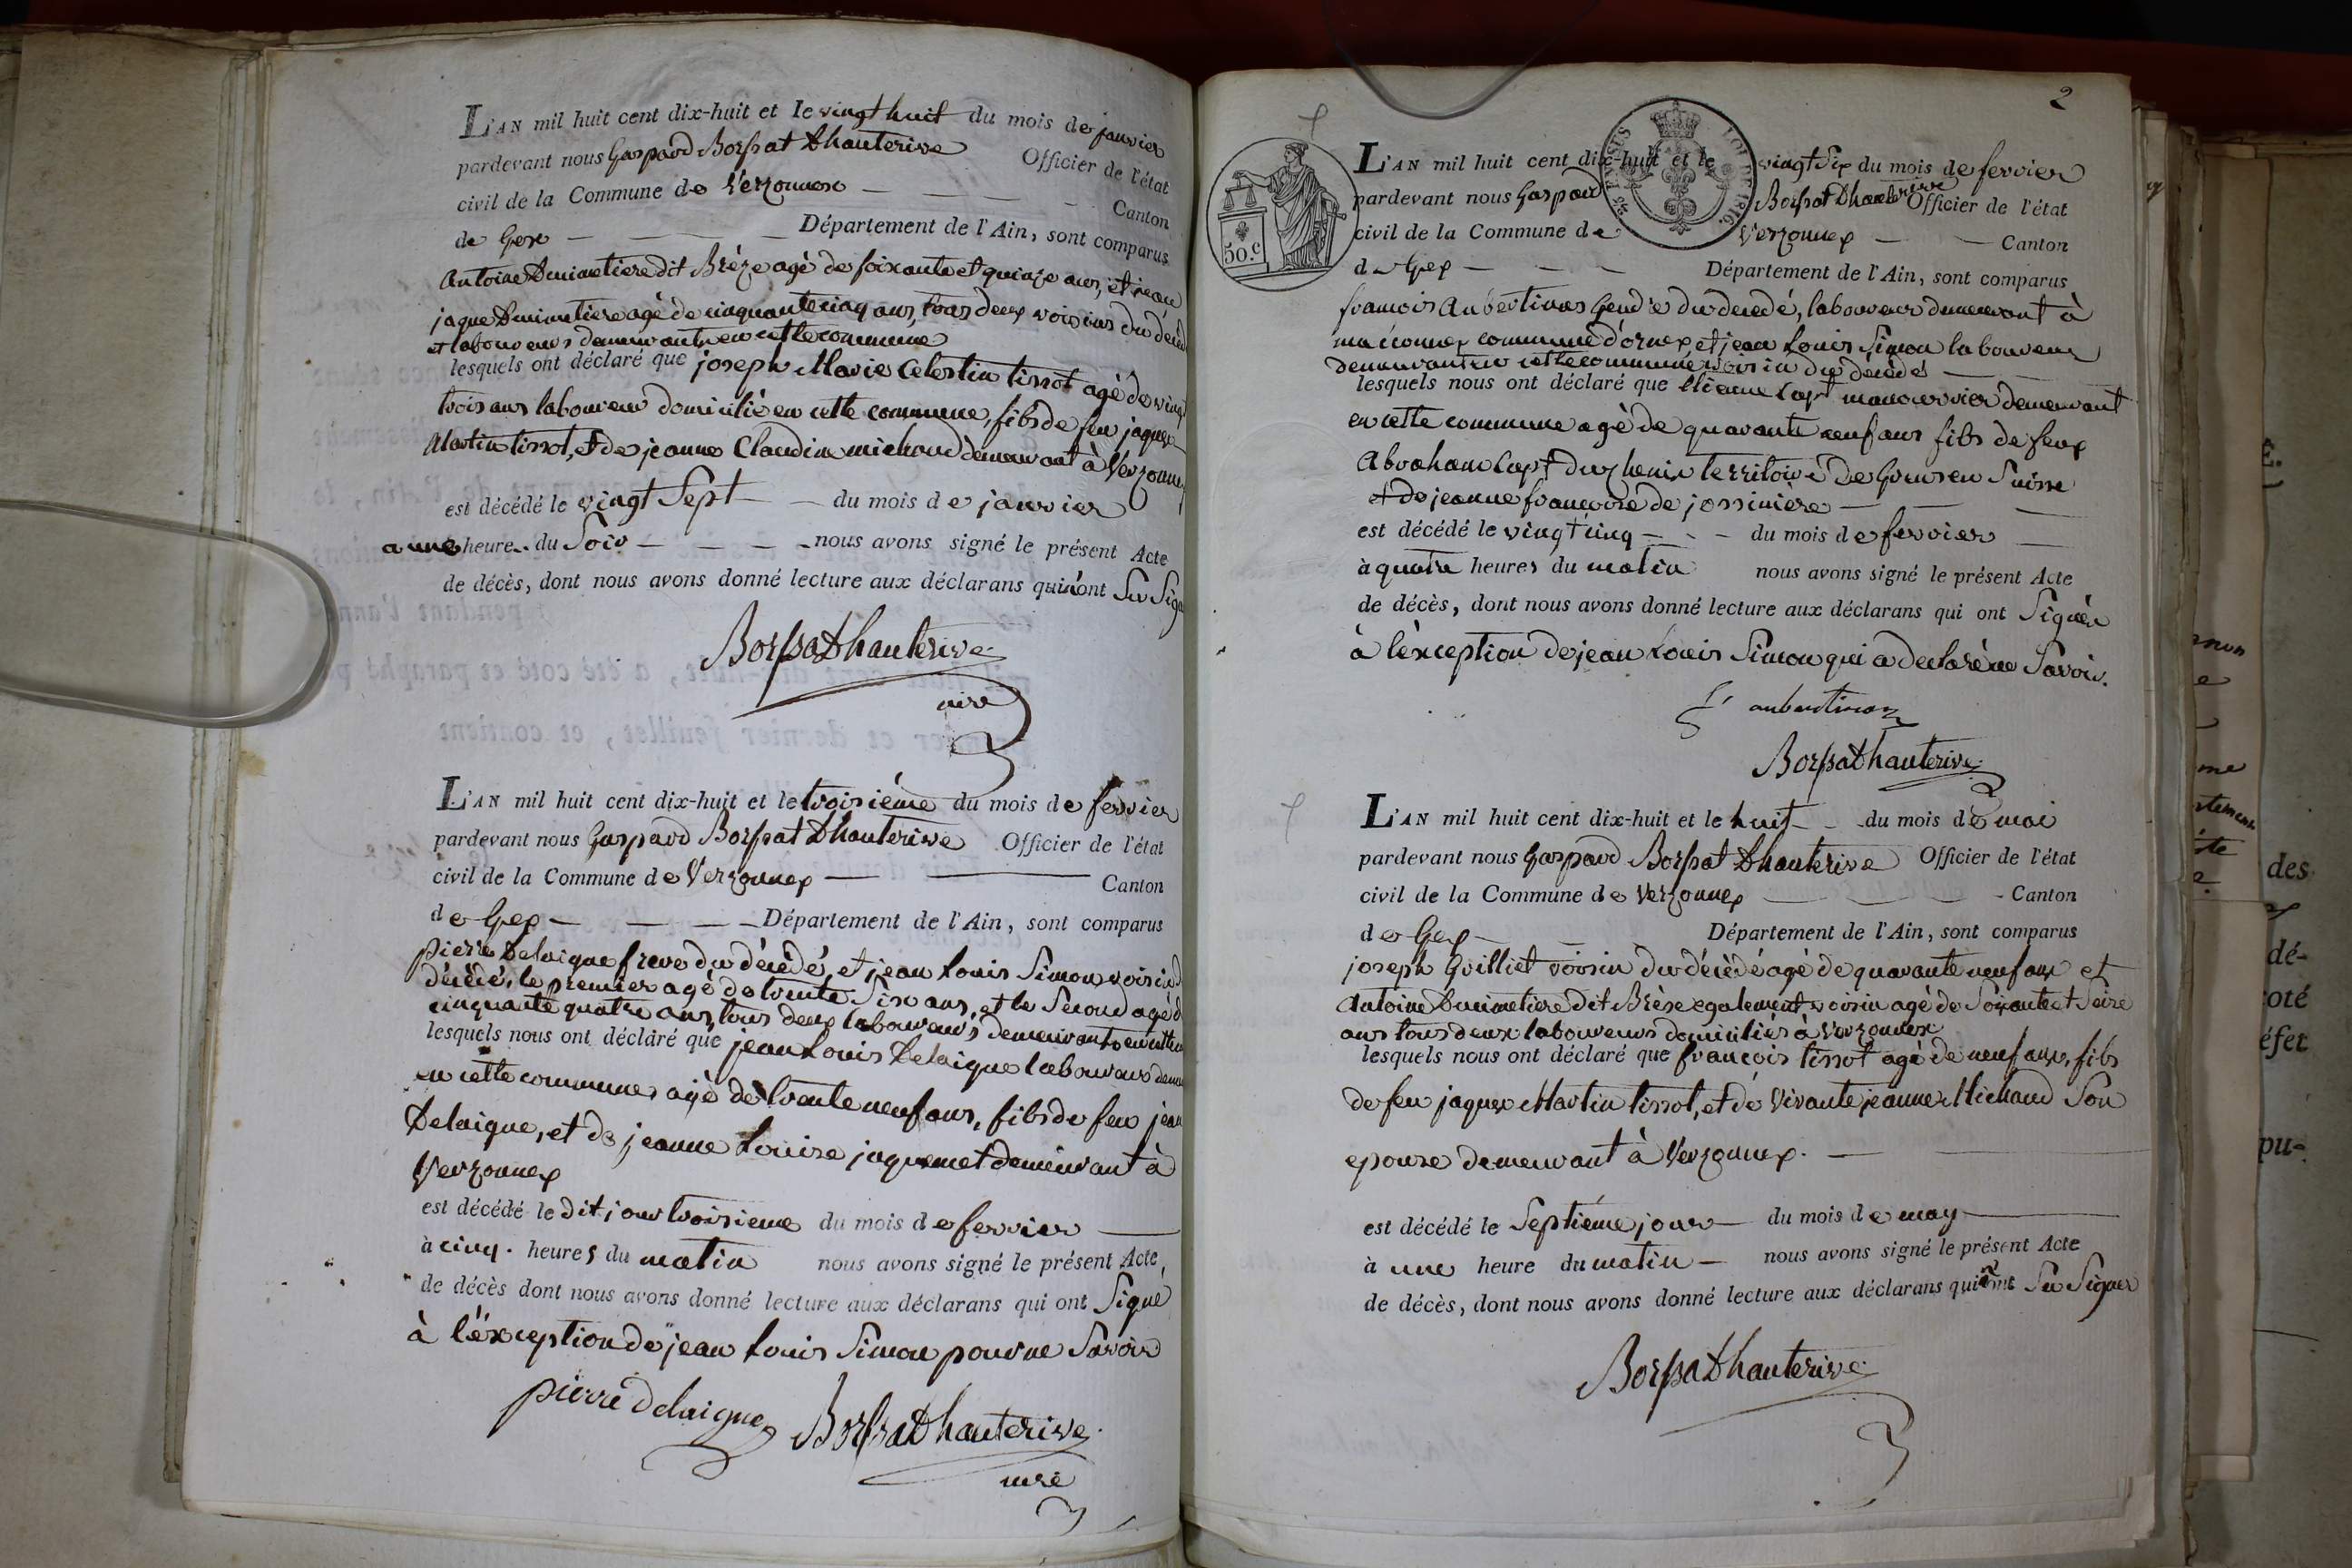 L'AN mil huit cent dix-huit et le vingt huit du mois de janvier
pardevant nous Gaspard Borssat Dhauterive Officier de l'état
civil de la Commune de Verzonnex Canton
de Gex Département de l'Ain, sont comparus
Antoine Dumetiere dit Brèze agé de soixante et quinze ans, et jean
jaque Dumetiere agé de cinquante cinq ans, tous deux voisins du décéd
et laboureurs demeurants en cette commune
lesquels ont déclaré que joseph Marie Celestin tissot agé de vingt
trois ans laboureur domicilié en cette commune, fils de feu jaques
Martin tissot, et de jeanne Claudine michaud demeurant à Verzonnex
est décédé le vingt Sept du mois de janvier
a une heure du Soir nous avons signé le présent Acte
de décès, dont nous avons donné lecture aux déclarans qui n'ont Su Signer
Borssat Dhauterive
mire
L'AN mil huit cent dix-huit et le troisième du mois de fevrier
pardevant nous Gaspard Borssat Dhauterive Officier de l'état
civil de la Commune de Verzonnex Canton
de Gex Département de l'Ain, sont comparus
pierre Delaigue frere du décédé, et jean Louis Simon voisin d
décédé, le premier agé de trente Six ans, et le Second agé d
cinquante quatre ans, tous deux laboureurs demeurants en cette
lesquels nous ont déclaré que jean Louis Delaigue laboureur dem
en cette commune, agé de trente neuf ans, fils de feu jean
Delaigue, et de jeanne Louise jaquemet demeurant à
Verzonnex
est décédé le dit jour troisieme du mois de fevrier
à cinq heures du matin nous avons signé le présent Acte
de décès dont nous avons donné lecture aux déclarans qui ont Signé
à l'éxception de jean Louis Simon pour ne Savoir
pierre delaigue Borssat Dhauterive
mire
2
50.c
L'AN mil huit cent dix-huit et le vingt Six du mois de fevrier
pardevant nous Gaspard Borssat Dhauterive Officier de l'état
civil de la Commune de Verzonnex Canton
de Gex Département de l'Ain, sont comparus
francois Aubertinos Gendre du décédé, laboureur demeurant à
maconnex commune d'ornex et jean Louis Simon laboureur
demeurant en cette commune voisin du décédé
lesquels nous ont déclaré que Etienne Capt manouvrier demeurant
en cette commune agé de quarante neuf ans fils de feux
Abraham Capt du chenix territoire de en Suisse
et de jeanne francoise de jossiniere
est décédé le vingt cinq du mois de fevrier
à quatre heures du matin nous avons signé le présent Acte
de décès, dont nous avons donné lecture aux déclarans qui ont Signés
à l'éxception de jean Louis Simon qui a declaré ne Savoir.
Borssat Dhauterive
L'AN mil huit cent dix-huit et le huit du mois de mai
pardevant nous Gaspard Borssat Dhauterive Officier de l'état
civil de la Commune de Verzonnex Canton
de Gex Département de l'Ain, sont comparus
joseph Grilliet voisin du décédé agé de quarante neuf ans et
Antoine Dumetiere dit Brèse egalement voisin agé de Soixante et Seize
ans tous deux laboureurs domiciliés à Verzonnex
lesquels nous ont déclaré que francois tissot agé de neuf ans, fils
de feu jaques Martin tissot, et de Vivante jeanne Michaud Son
epouse demeurant à Verzonnex.
est décédé le Septiéme jour du mois de may
à une heure du matin nous avons signé le présent Acte
de décès, dont nous avons donné lecture aux déclarans qui n'ont Su Signer
Borssat Dhauterive
des
dé-
pu-